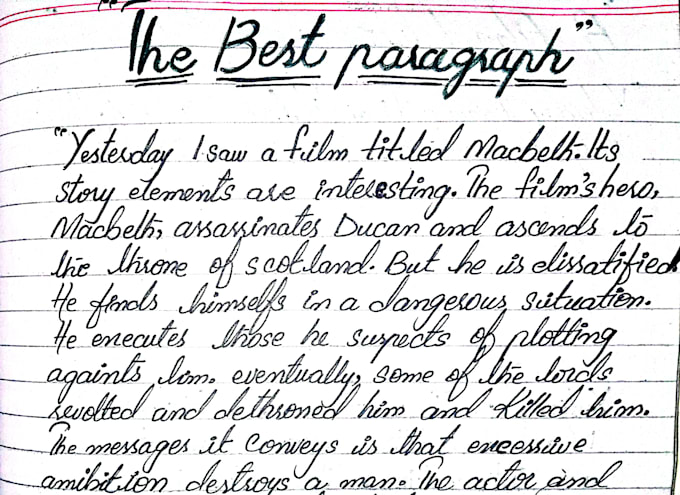 "The Best paragraph"
"Yesterday I saw a film titled Macbeth. Its
story elements are interesting. The film's hero,
Macbeth, assassinates Ducan and ascends to
the throne of scotland. But he is dissatified
He finds himselfs in a dangerous situation.
He executes those he suspects of plotting
againts him. eventually, some of the lords
revolted and dethroned him and killed him.
The messages it conveys is that excessive
amibition destroys a man. The actor and